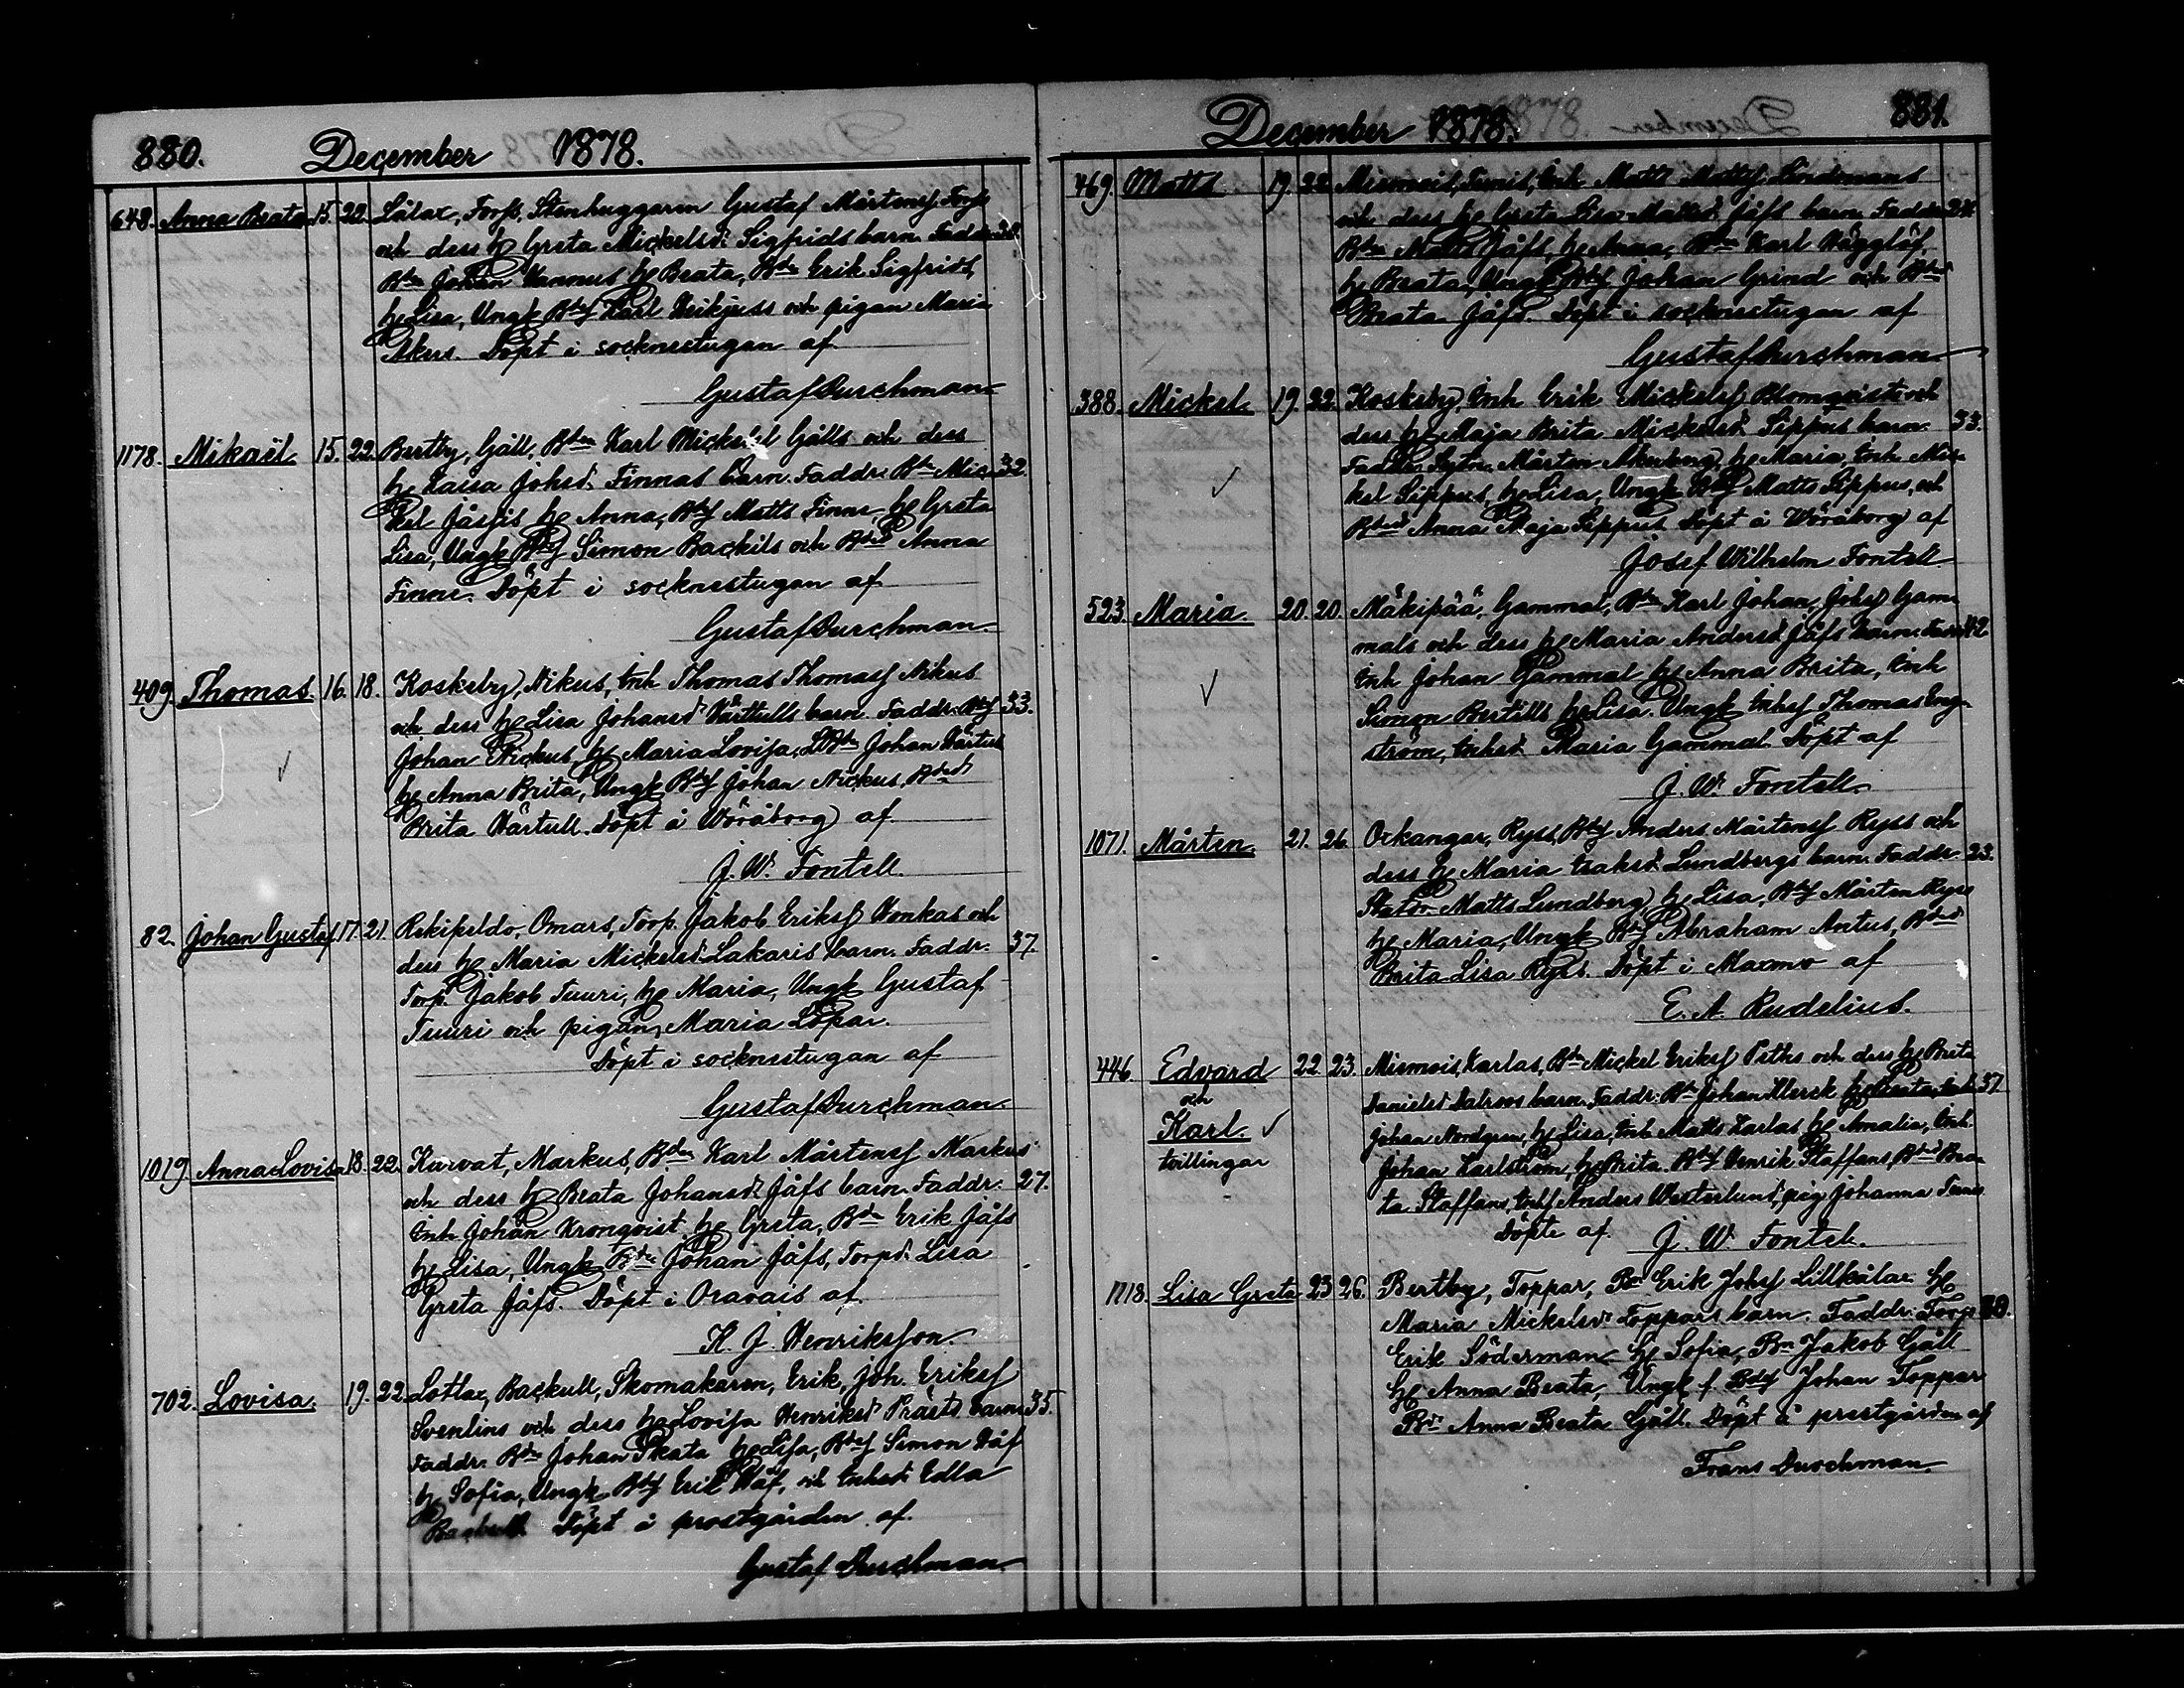 880. December 1878.
648. Anna Beata 15. 22. Lålax, Forss, Stenhuggaren Gustaf Mårtenss. Forss
och dess h. Greta Mickelsd. Sigfrids barn. Faddr. 28.
Bdn Johan Kannus h. Beata, Bdn Erik Sigfrids,
h. Lisa, Ungk. Bdes. Karl Keikjuss och pigan Maria
Akers Döpt i socknestugan af
Gustaf Durchman
1178. Mikaël. 15. 22. Bertby, Gåll, Bdn Karl Mickelsd Gålls och dess
h. Kaisa Johsd. Finnas barn. Faddr. Bdn Mic- 32.
kel Jåsjis h. Anna, Bdes. Matts Finne, h. Greta
Lisa, Ungk. Bdes. Simon Backils och Bded. Anna
Finne. Döpt i socknestugan af
Gustaf Durchman.
409. Thomas. 16. 18. Koskeby, Nikus, Inh. Thomas Thomass. Nikus
och dess h. Lisa Johansd. Kärttulls barn. Faddr. Bdes. 33.
Johan Nickus, h. Maria Lovisa, Bdn Johan Kärtull
h. Anna Brita, Ungk. Bdes. Johan Nickus, Bded.
Brita Kärtull. Döpt å Wöråborg af
J. W. Fontell.
82. Johan Gustaf 17. 21. Rekipeldo, Omars, Torp. Jakob Erikss. Honkas och
dess h. Maria Mickelsd. Lakaris barn. Faddr. 37.
Torp. Jakob Tuuri, h. Maria, Ungk. Gustaf
Tuuri och pigan Maria Löpar.
Döpt i socknestugan af
Gustaf Durchman.
1019. Anna Lovisa 18. 22. Karvat, Markus, Bdn Karl Mårtenss. Markus
och dess h. Beata Johansd. Jåfs barn. Faddr. 27.
Inh. Johan Kronqvist, h. Greta, Bdn Erik Jåfs
h. Lisa, Ungk. Bdn Johan Jåfs, Torpd. Lisa
Greta Jåfs. Döpt i Oravais af
K. J. Henriksson
702. Lovisa. 19. 22. Lotlax, Backull, Skomakaren, Erik, Joh. Erikss.
Svenlins och dess h. Lovisa Henriksd. Prästs barn 35.
Faddr. Bdn Johan Skata h. Lisa, Bdes. Simon Håf
h. Sofia, Ungk. Bdes. Erik Håf, och Inhsd. Edla
Döpt å prostgården af
Gustaf Durchman
December 1878. 881.
469. Matts 19. 22. Miemois, Tunis, Inh. Matts Mattss. Lindmans
och dess h. Greta Lisa Mattsd. Jåfs barn. Faddr.
Bdn Matts Jåfs, h. Anna, Bdn Karl Häggläf,
h. Beata, Ungk. Bdes. Johan Grind och Bded.
Beata Jåfs. Döpt i socknestugan af
Gustaf Durchman
388. Mickel. 19. 22. Koskeby, Inh. Erik Mickelss. Blomqvists och
dess h. Maja Brita Mickelsd. Sippus barn. 33.
Faddr. Mårten Åkerberg, h. Maria, Inh. Mic-
kel Sippus, h. Lisa, Ungk. Bdes. Matts Sippus, och
Bded. Anna Maja Sippus Döpt å Wöråborg af
Josef Wilhelm Fontell
523. Maria. 20. 20. Mäkipää, Gammal, Bdn Karl Johan, Johss. Gam-
mals och dess h. Maria Andersd. Jåfs barn. Faddr. 42.
Inh. Johan Gammal h. Anna Brita, Inh.
Simon Bertills h. Lisa. Ungk. Inhss. Thomas Eng-
ström, Inhsd. Maria Gammal. Döpt af
J. W. Fontell.
1071. Mårten. 21. 26. Ockangar, Ryss, Bdes. Anders Mårtenss. Ryss och
dess h. Maria Isaksd. Lundbergs barn. Faddr. 23.
Matts Lundberg, h. Lisa, Bdes. Mårten Ryss
h. Maria, Ungk. Bdes. Abraham Antus, Bded.
Brita Lisa Ryss. Döpt i Maxmo af
E. A. Rudelius.
446. Edvard 22. 23. Miemois, Karlas, Bdn Mickel Erikss. Peths och dess h. Brita
och
Danielsd. Dalroos barn. Faddr. Bdn Johan Klerck h. Beata, Inh. 37.
Karl.
Johan Nordgren, h. Lisa, Inh. Matts Karlas h. Amalia, Inh.
tvillingar
Johan Karlström, h. Brita. Bdes. Henrik Staffans, Bded. Bea-
ta Staffans, Inhs. Anders Westerlund, pig. Johanna Tunis
Döpte af J. W. Fontell.
1218. Lisa Greta 23 26. Bertby, Toppar, Bn Erik Johss. Lillkålax h.
Maria Mickelsd. Toppars barn. Faddr. Torp. 30.
Erik Söderman h. Sofia, Bn Jakob Gåll
h. Anna Beata, Ungk. f. Bdes. Johan Toppar
Bd. Anna Beata Gåll. Döpt å prestgården af
Frans Durchman